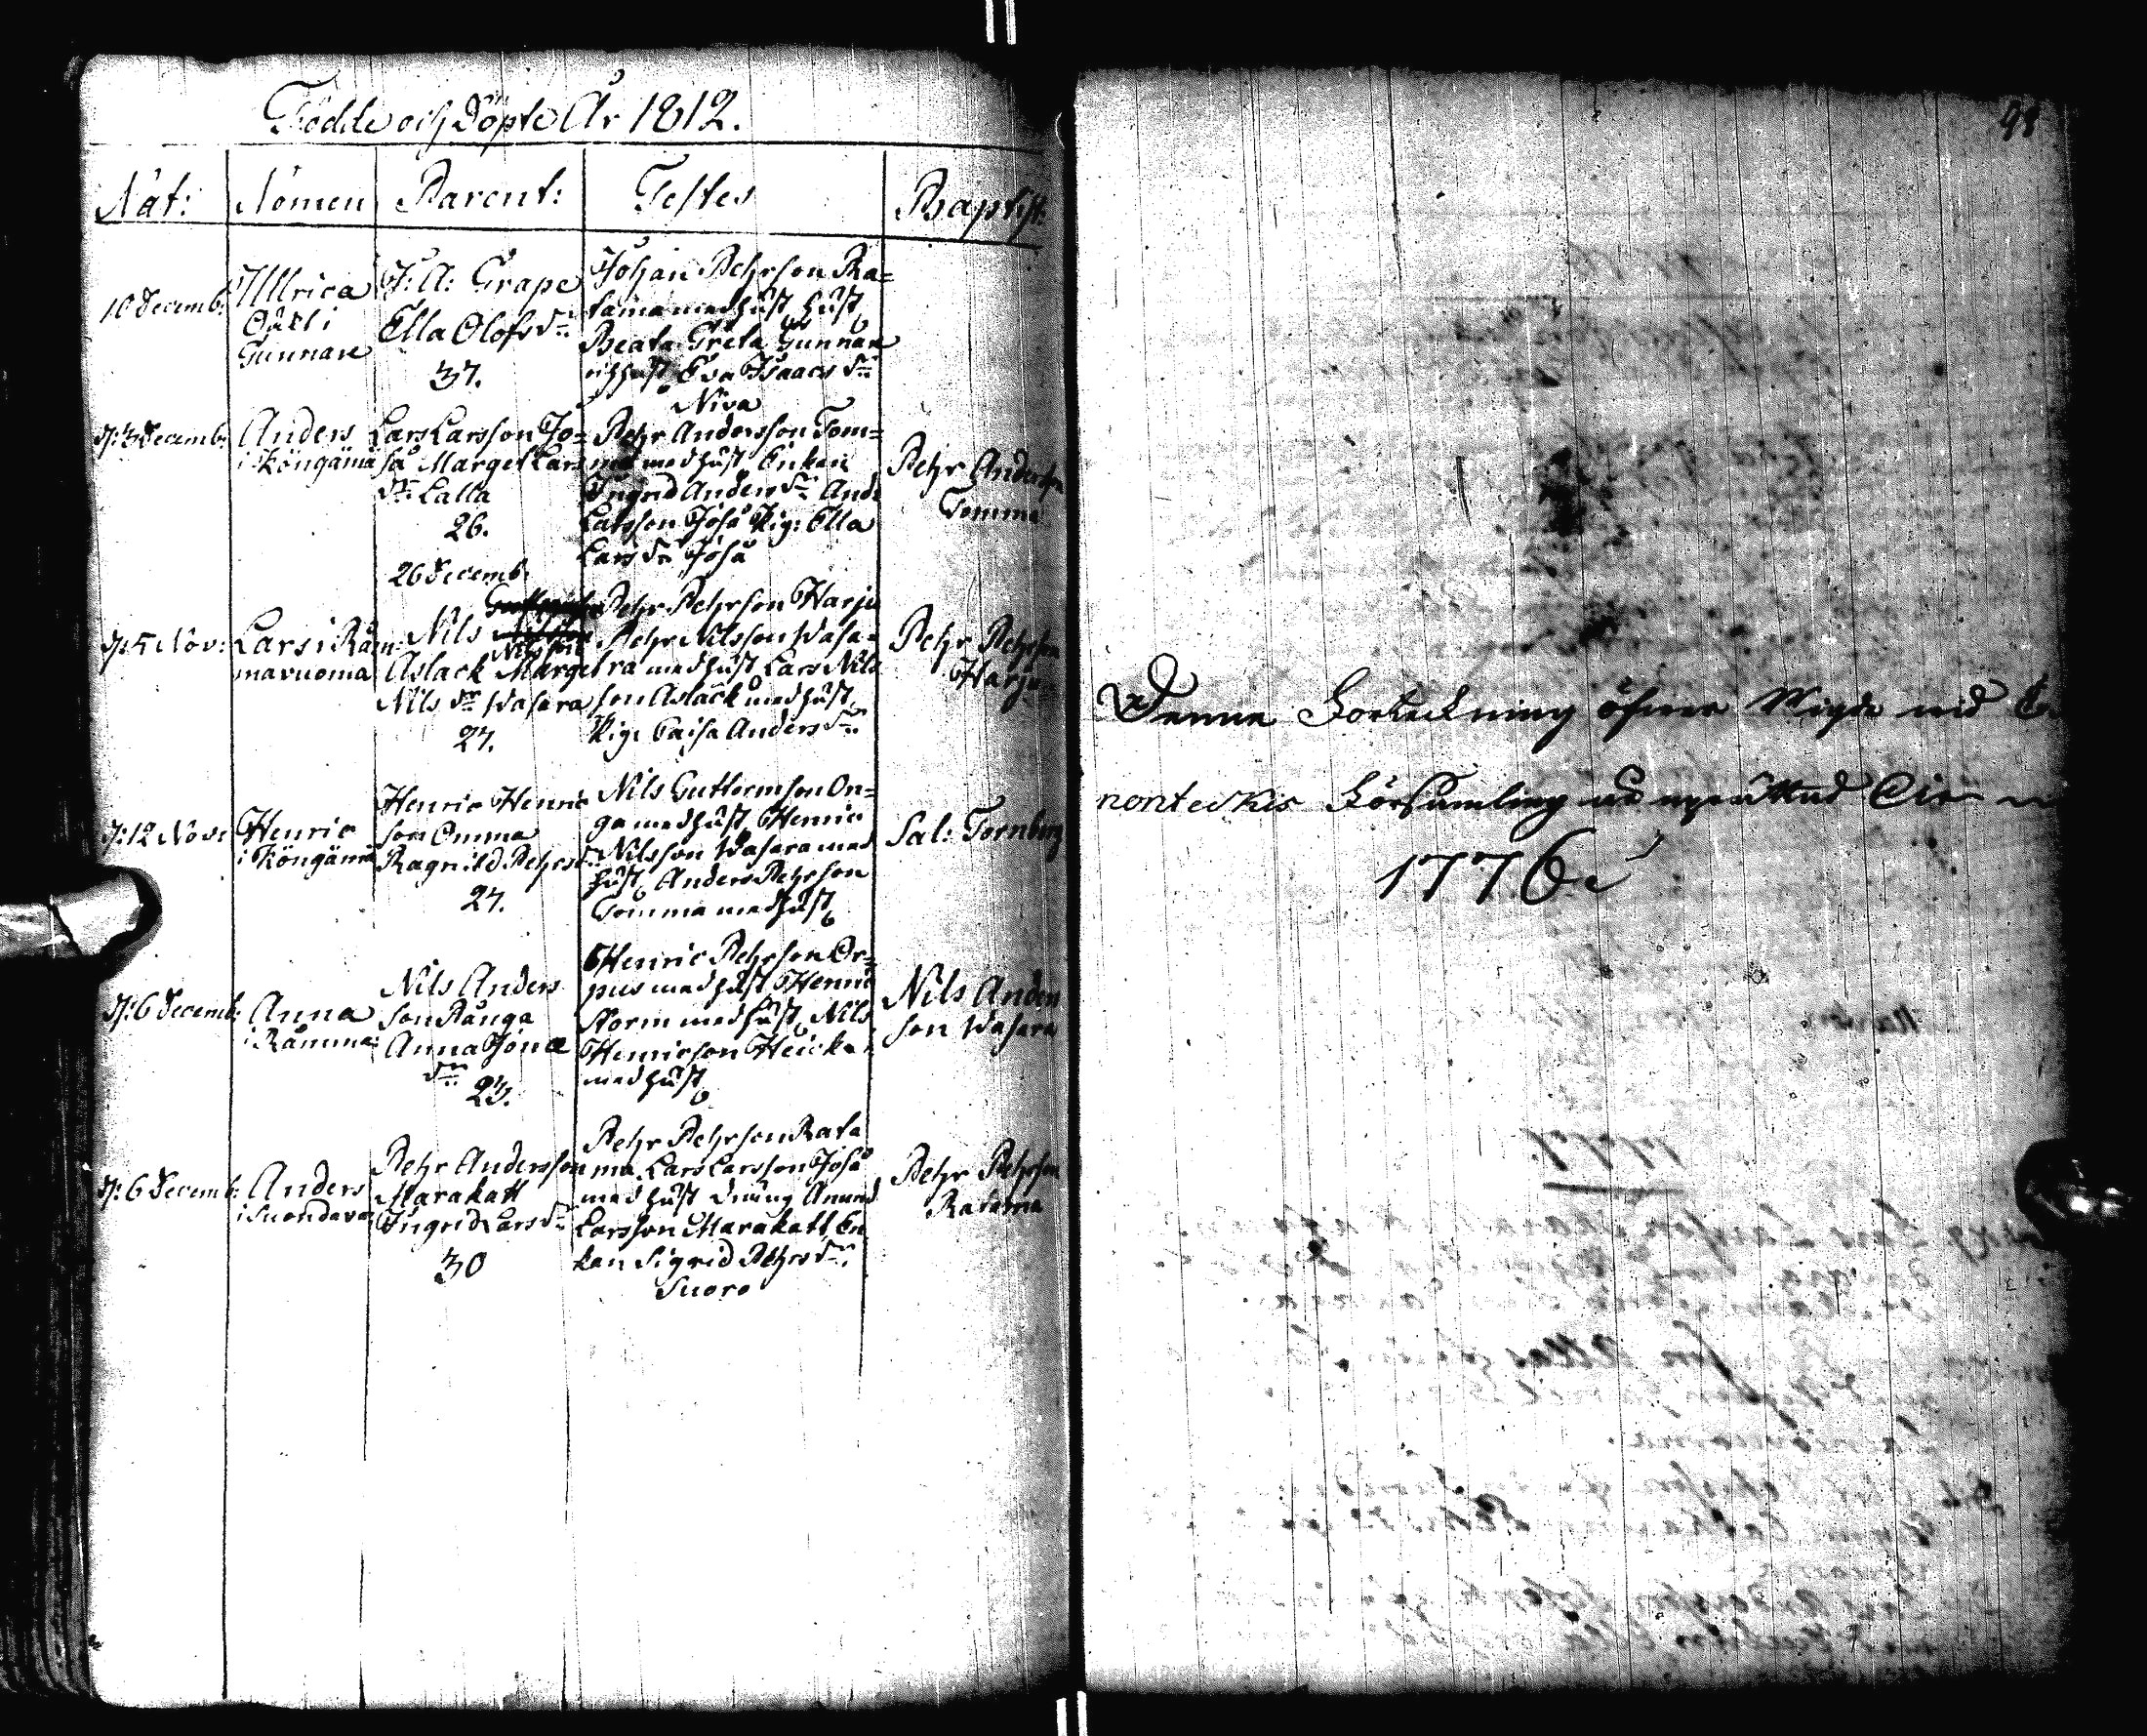 Födde och Döpte År 1812.
Nat: Nomen Parent: Testes Baptist:
10 Decemb: Ullrica
i
Gunnare
F: A: Grape
Ella Olofs dr
37.
Johan Pehrson Ra=
tama med hust hust
Beata Greta Gunnare
och hust Eva Isaacs dr
Niva
d: 3 Decemb: Anders
i Köngämä
Lars Larsson Jo=
så Marget Lars
dr Lalla
26.
Pehr Andersson Tom=
ma med hust Enkan
Ingrid Anders dr And:
Larsson Joså Pig: Ella
Lars dr Joså
Pehr Andersson
Tomma
26 Decemb:
d: 5 Nov: Lars i Råm
mavuoma
Nils
Nilsson
Aslack Marget
Nils dr Wasara
27.
Pehr Pehrson Harju
Pehr Nilsson Wasa=
ra med hust Lars Nils
son Aslack med hust
Pig: Caisa Anders dr
Pehr Pehrson
Harju
d: 12 Nov: Henric
i Köngämä
Henric Henric
son Omma
Ragnild Pehrs dr
27.
Nils Guttormson On=
ga med hust Henric
Nilsson Wasara med
hust Anders Pehrson
Tomma med hust
Sal: Tornberg
d: 6 Decemb: Anna
i Råmma:
Nils Anders
son Rånga
Anna Jonæ
dr 23.
Henric Pehrson Or=
pus med hust Henric
Storm med hust Nils
Henricson Heicka
med hust
Nils Anders
son Wasara
d: 6 Decemb: Anders
i Suondava
Pehr Andersson
Marakatt
Ingrid Lars dr
30
Pehr Pehrson Rata
ma Lars Larsson Joså
med hust dräng Amund
Larsson Marakatt En
kan Sigrid Pehrs dr
Suoro
Pehr Pehrson
Ratama
98
Denna Förteckning öfver Wigde vid E
nonteckis Församling är uprättad
1776